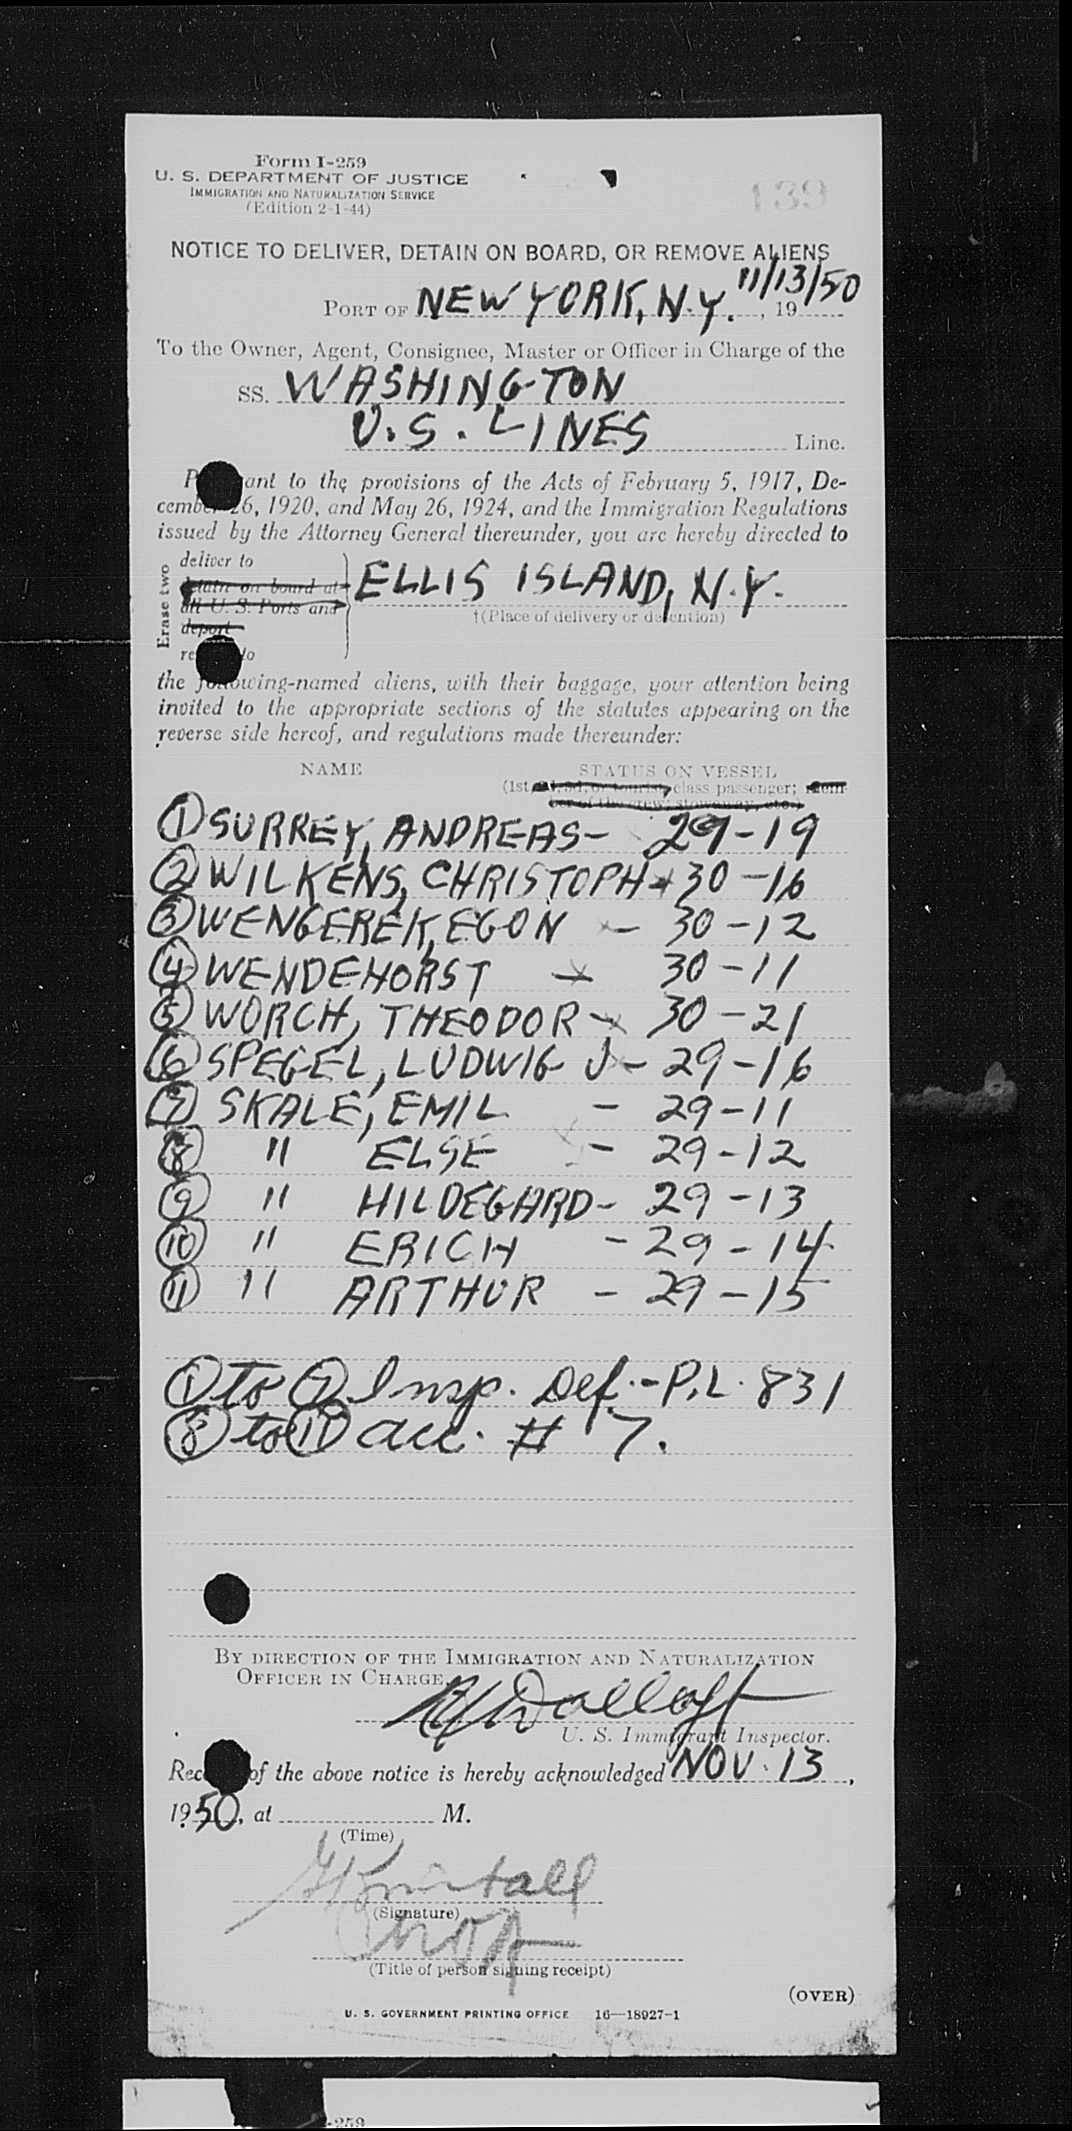 Form I-259
U. S. DEPARTMENT OF JUSTICE
IMMIGRATION AND NATURALIZATION SERVICE
(Edition 2-1-44)
139
NOTICE TO DELIVER, DETAIN ON BOARD, OR REMOVE ALIENS
PORT OF NEW YORK, N.Y. 11/13/50, 19
To the Owner, Agent, Consignee, Master or Officer in Charge of the
SS. WASHINGTON
U.S. LINES Line.
Pursuant to the provisions of the Acts of February 5, 1917, De-
cember 26, 1920, and May 26, 1924, and the Immigration Regulations
issued by the Attorney General thereunder, you are hereby directed to
Erase two
deliver to
detain on board at
all U. S. Ports and
deport
remove to
ELLIS ISLAND, N.Y.
†(Place of delivery or detention)
the following-named aliens, with their baggage, your attention being
invited to the appropriate sections of the statutes appearing on the
reverse side hereof, and regulations made thereunder:
NAME STATUS ON VESSEL
(1st, 2d, 3d, or tourist, class passenger; mem-
ber of the crew; stowaway, etc.)
1 SURREY, ANDREAS - 29-19
2 WILKENS, CHRISTOPH - 30-16
3 WENGEREK, EGON - 30-12
4 WENDEHORST - 30-11
5 WORCH, THEODOR - 30-21
6 SPEGEL, LUDWIG J - 29-16
7 SKALE, EMIL - 29-11
8 " ELSE - 29-12
9 " HILDEGARD - 29-13
10 " ERICH - 29-14
11 " ARTHUR - 29-15
1 to 7 Insp. Def. - P.L. 831
8 to 11 acc. # 7.
BY DIRECTION OF THE IMMIGRATION AND NATURALIZATION
OFFICER IN CHARGE.
U. S. Immigrant Inspector.
Receipt of the above notice is hereby acknowledged NOV. 13,
1950, at M.
(Time)
(Signature)
(Title of person signing receipt)
(OVER)
U. S. GOVERNMENT PRINTING OFFICE 16—18927-1
-259